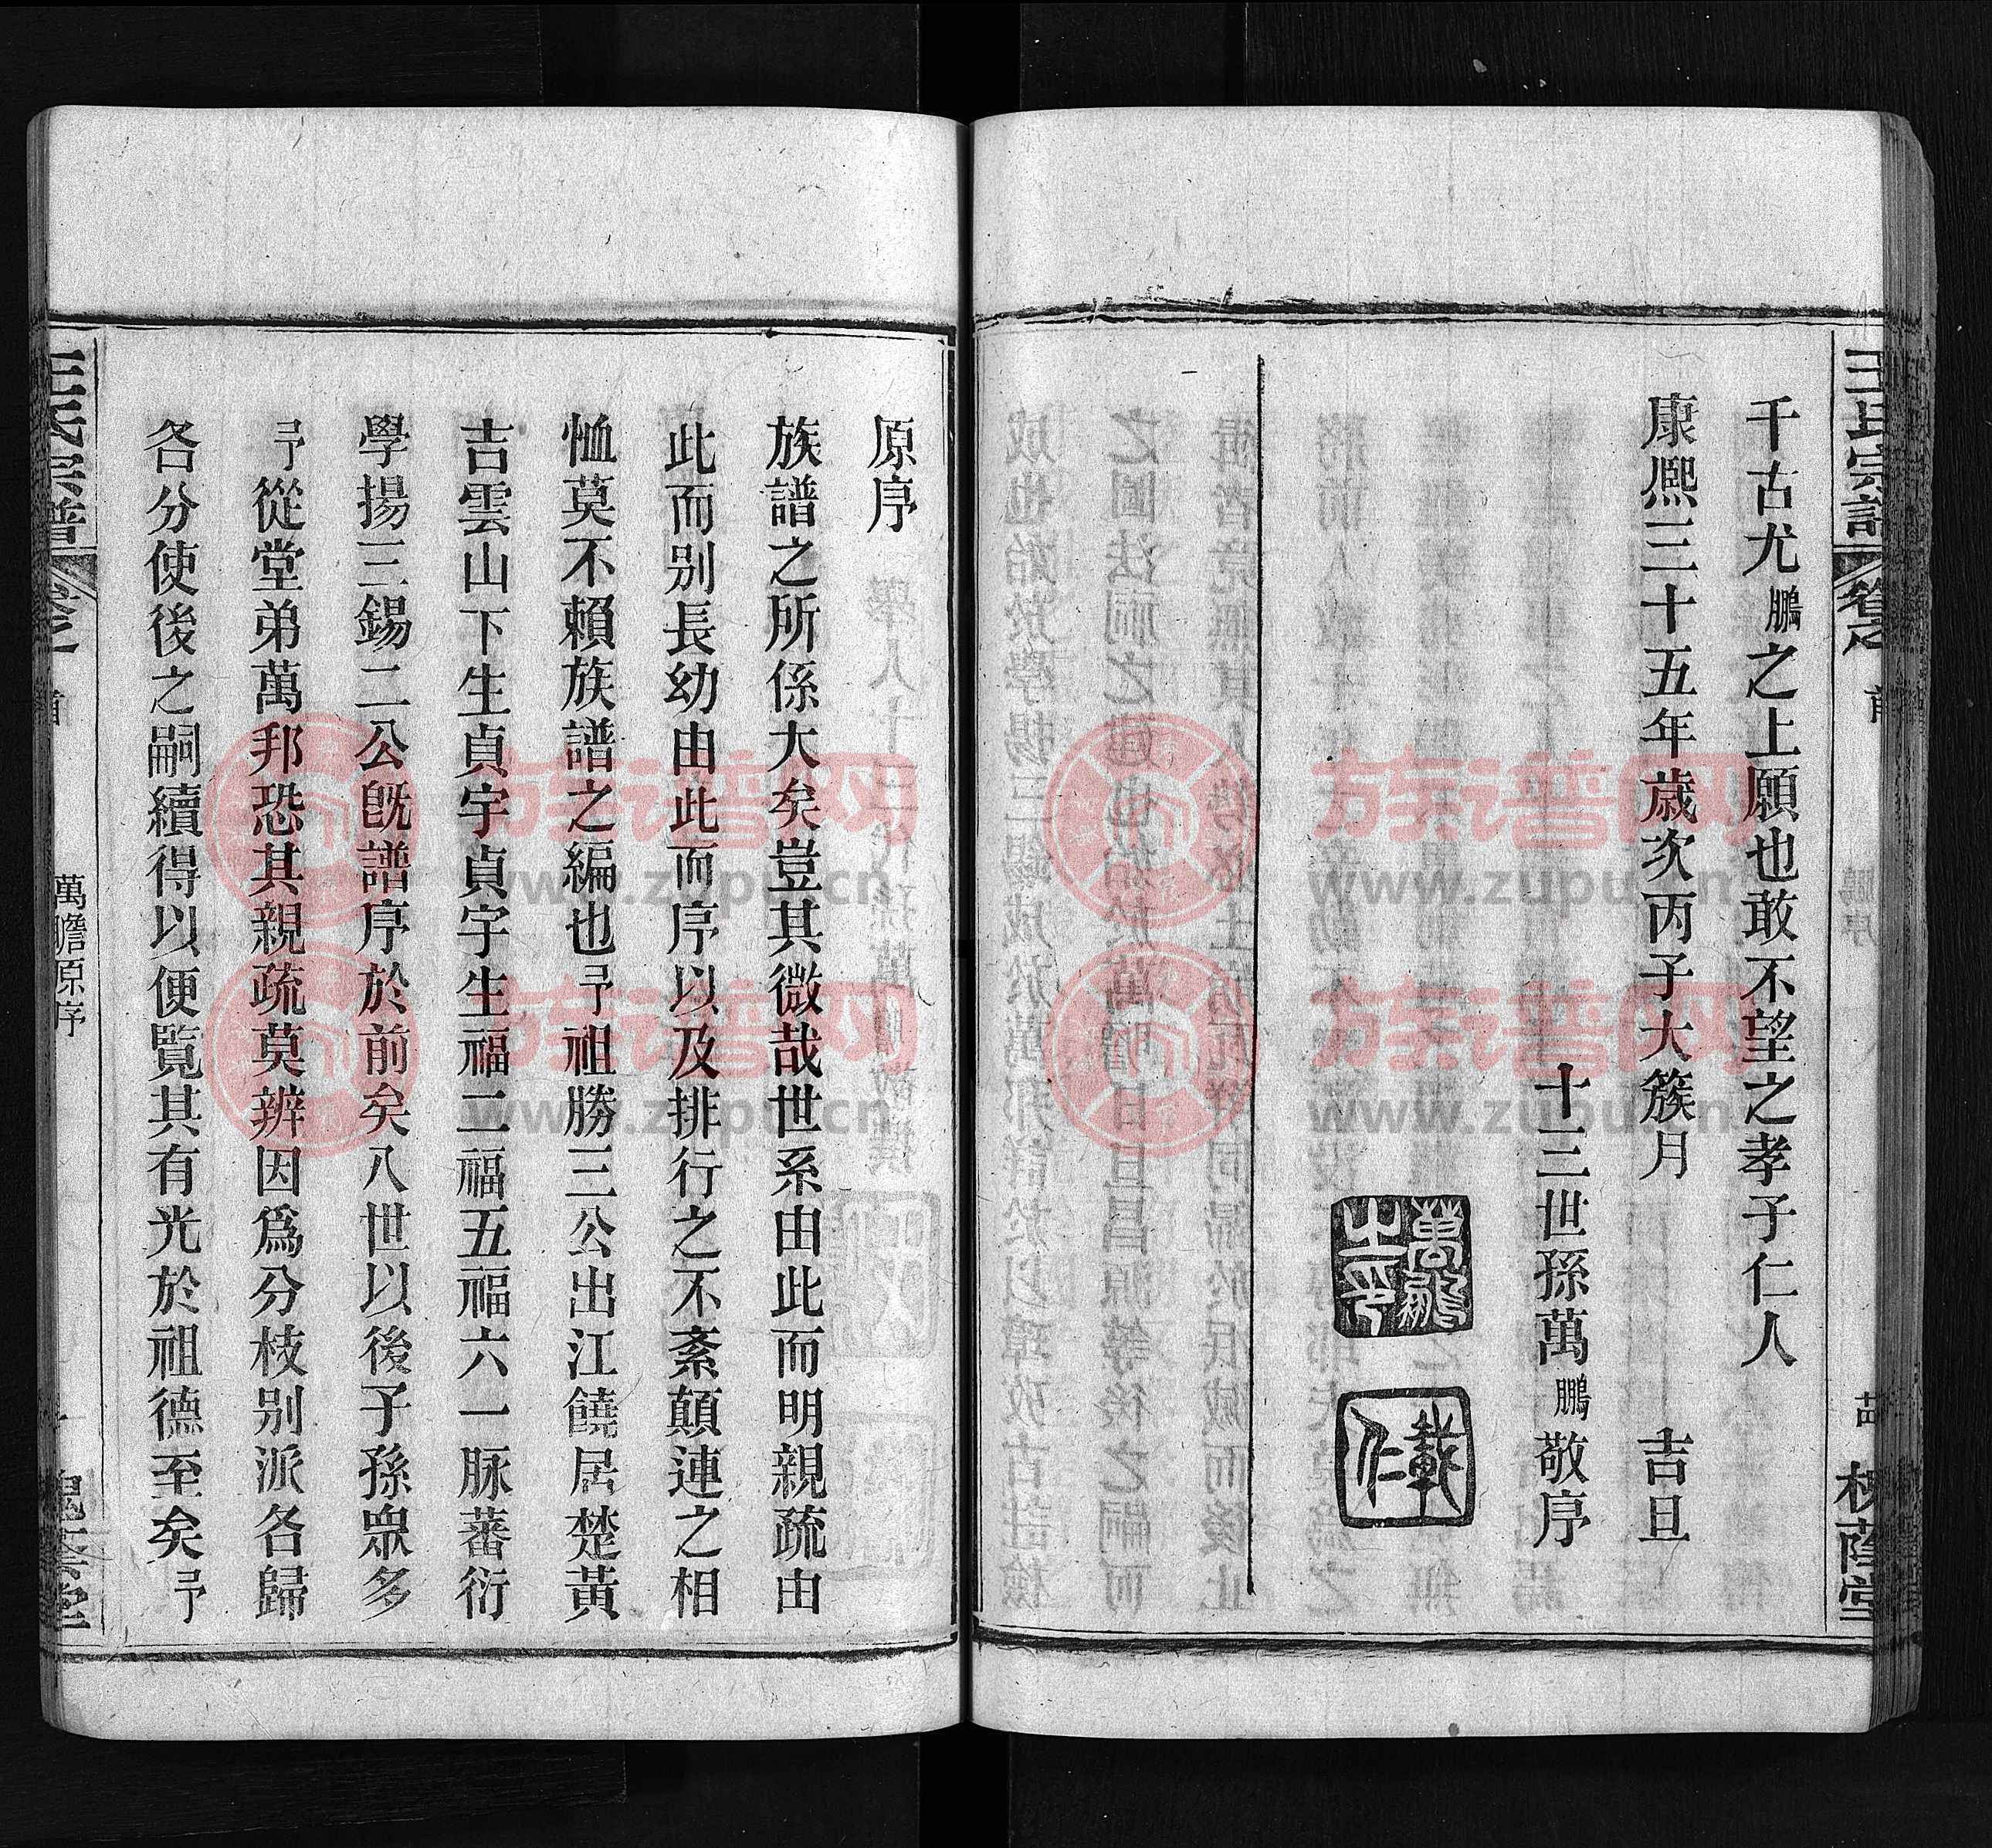 王氏宗譜
卷之
首
槐蔭堂
千古尤鵬之上願也敢不望之孝子仁人
康熙三十五年歲次丙子大簇月　吉旦
十三世孫萬鵬敬序
萬鵬之印
原序
族譜之所係大矣豈其微哉世系由此而明親疏由
此而别長幼由此而序以及排行之不紊顛連之相
恤莫不賴族譜之編也予祖勝三公出江饒居楚黃
吉雲山下生貞宇貞宇生福二福五福六一脉蕃衍
學揚三錫二公旣譜序於前矣八世以後子孫衆多
予從堂弟萬邦恐其親疏莫辨因爲分枝别派各歸
各分使後之嗣續得以便覽其有光於祖德至矣予
王氏宗譜
卷之
首
萬瞻原序
槐蔭堂
族谱网
www.zupu.cn
族谱网
www.zupu.cn
族谱网
www.zupu.cn
族谱网
www.zupu.cn